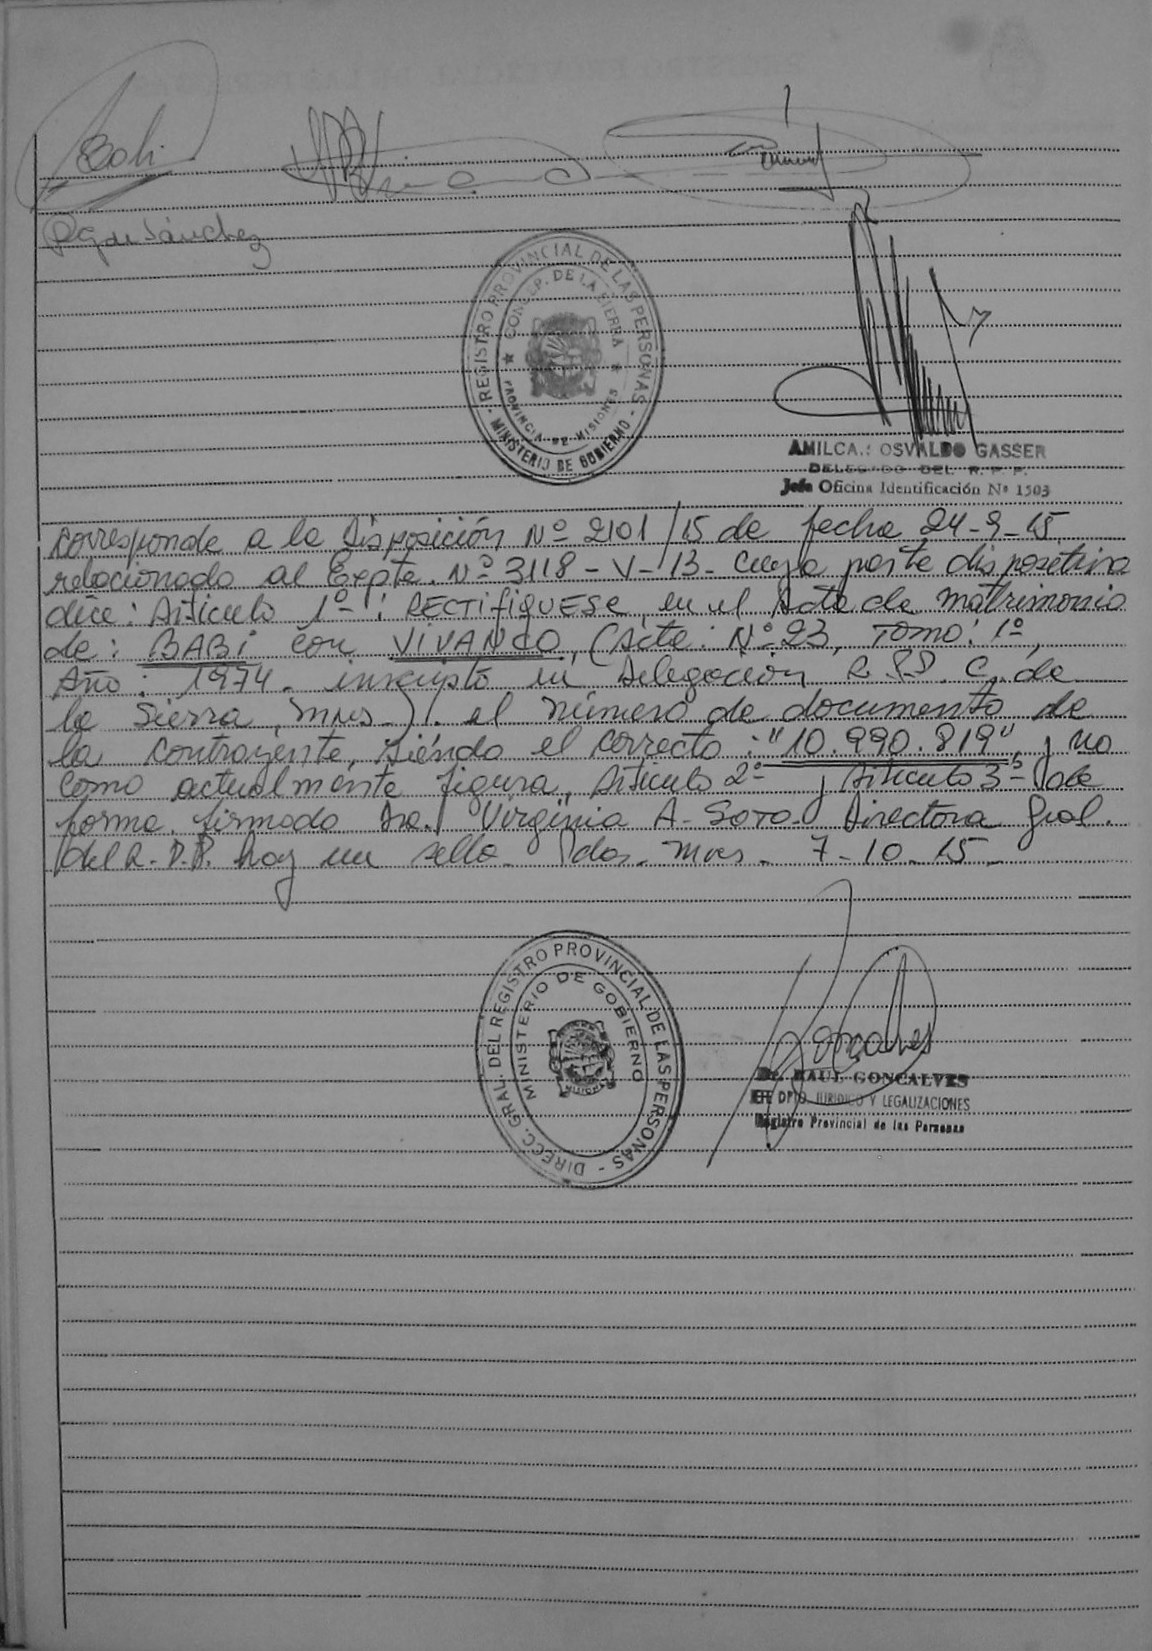 Babi
P G de Sánchez
REGISTRO PROVINCIAL DE LAS PERSONAS - MINISTERIO DE GOBIERNO -
CONCEP. DE LA SIERRA
PROVINCIA DE MISIONES
AMILCA.: OSVALDO GASSER
DELEGADO DEL R. P. P.
Jefe Oficina Identificación Nº 1503
corresponde a la Disposición Nº 2101/15 de fecha 24-9-15,
relacionado al Expte. Nº 3118-V-13- cuya parte dispositiva
dice: Artículo 1º: RECTIFIQUESE, en el Acta de matrimonio
de: BABI con VIVANCO, (Acta: Nº 23, Tomo: 1º,
Año: 1974. inscripto en Delegación R.P.P. C. de
la Sierra, Mnes.). el número de documento de
la contrayente, siendo el correcto: "10.990.819", y no
como actualmente figura, Artículo 2º y Artículo 3º de
forma. firmado Dra. Virginia A. Soto. Directora Gral.
del R.P.P. hay un sello. Pdas. Mnes. 7-10-15.
DIRECC. GRAL. DEL REGISTRO PROVINCIAL DE LAS PERSONAS -
MINISTERIO DE GOBIERNO
MISIONES
Goncalves
Dr. RAUL GONCALVES
JEFE DPTO. JURIDICO Y LEGALIZACIONES
Registro Provincial de las Personas